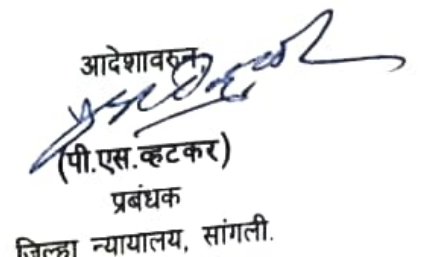 आदेशावरुन,
(पी.एस.व्हटकर)
प्रबंधक
जिल्हा न्यायालय, सांगली.